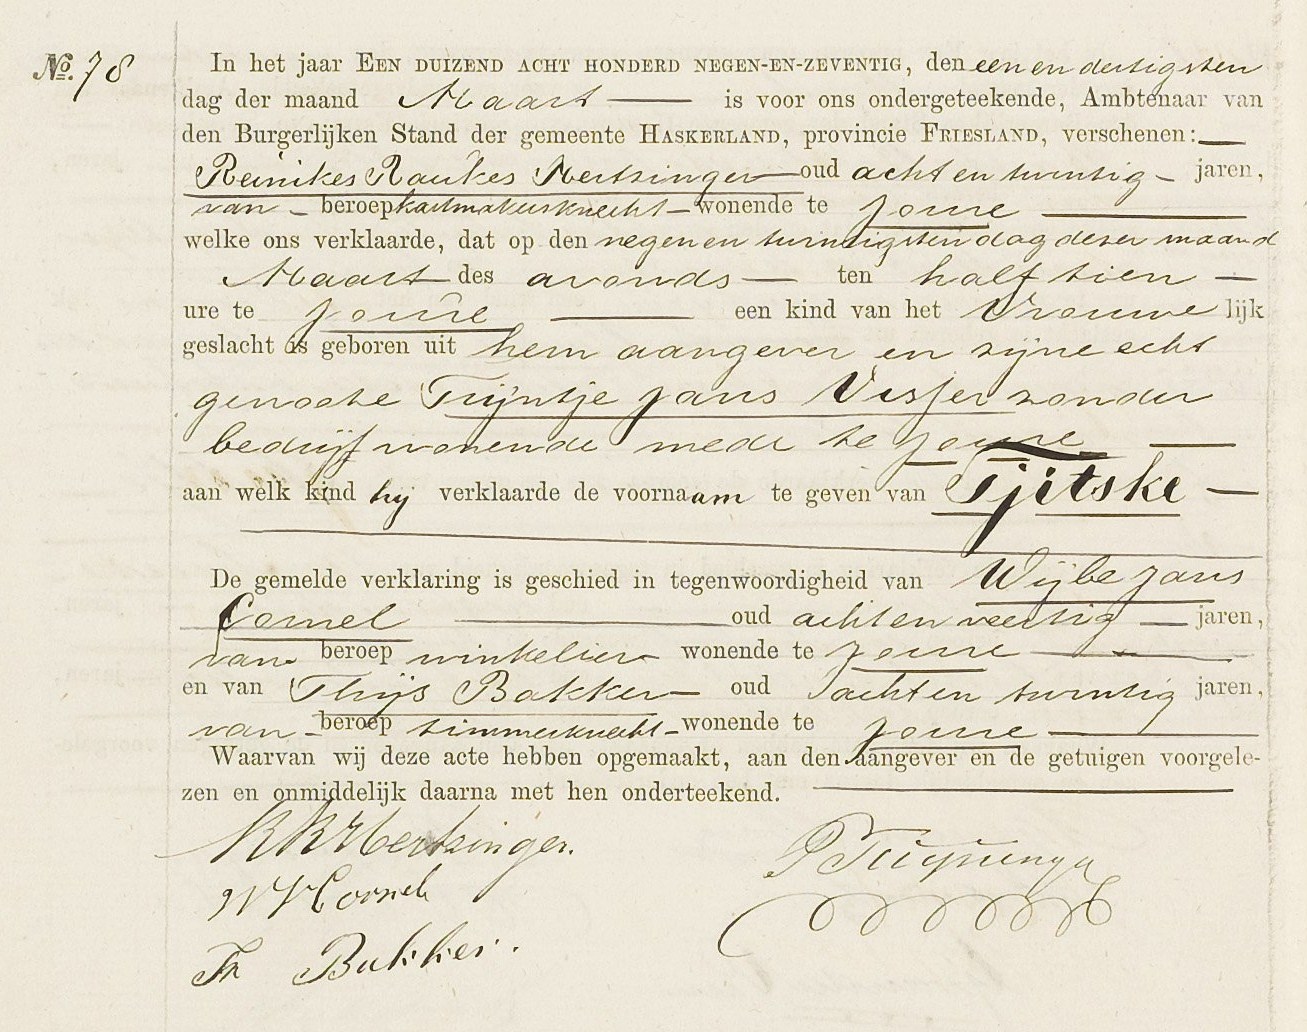 No. 78
In het jaar Een duizend acht honderd negen-en-zeventig, den een en dertigsten
dag der maand Maart is voor ons ondergeteekende, Ambtenaar van
den Burgerlijken Stand der gemeente Haskerland, provincie Friesland, verschenen:
Reinikes Raukes Hertzinger oud acht en twintig jaren,
van beroep kastmakersknecht wonende te Joure
welke ons verklaarde, dat op den negen en twintigsten dag dezer maand
Maart des avonds ten half tien
ure te Joure een kind van het Vrouwelijk
geslacht is geboren uit hem aangever en zijne echt
genoote Trijntje Jans Visser zonder
bedrijf wonende mede te Joure
aan welk kind hij verklaarde de voornaam te geven van Tjitske
De gemelde verklaring is geschied in tegenwoordigheid van Wijbe Jans
Cornel oud acht en veertig jaren,
van beroep winkelier wonende te Joure
en van Thijs Bakker oud acht en twintig jaren,
van beroep timmerknecht wonende te Joure
Waarvan wij deze acte hebben opgemaakt, aan den aangever en de getuigen voorgele-
zen en onmiddelijk daarna met hen onderteekend.
R R Hertzinger.
W J Cornel
Th Bakker.